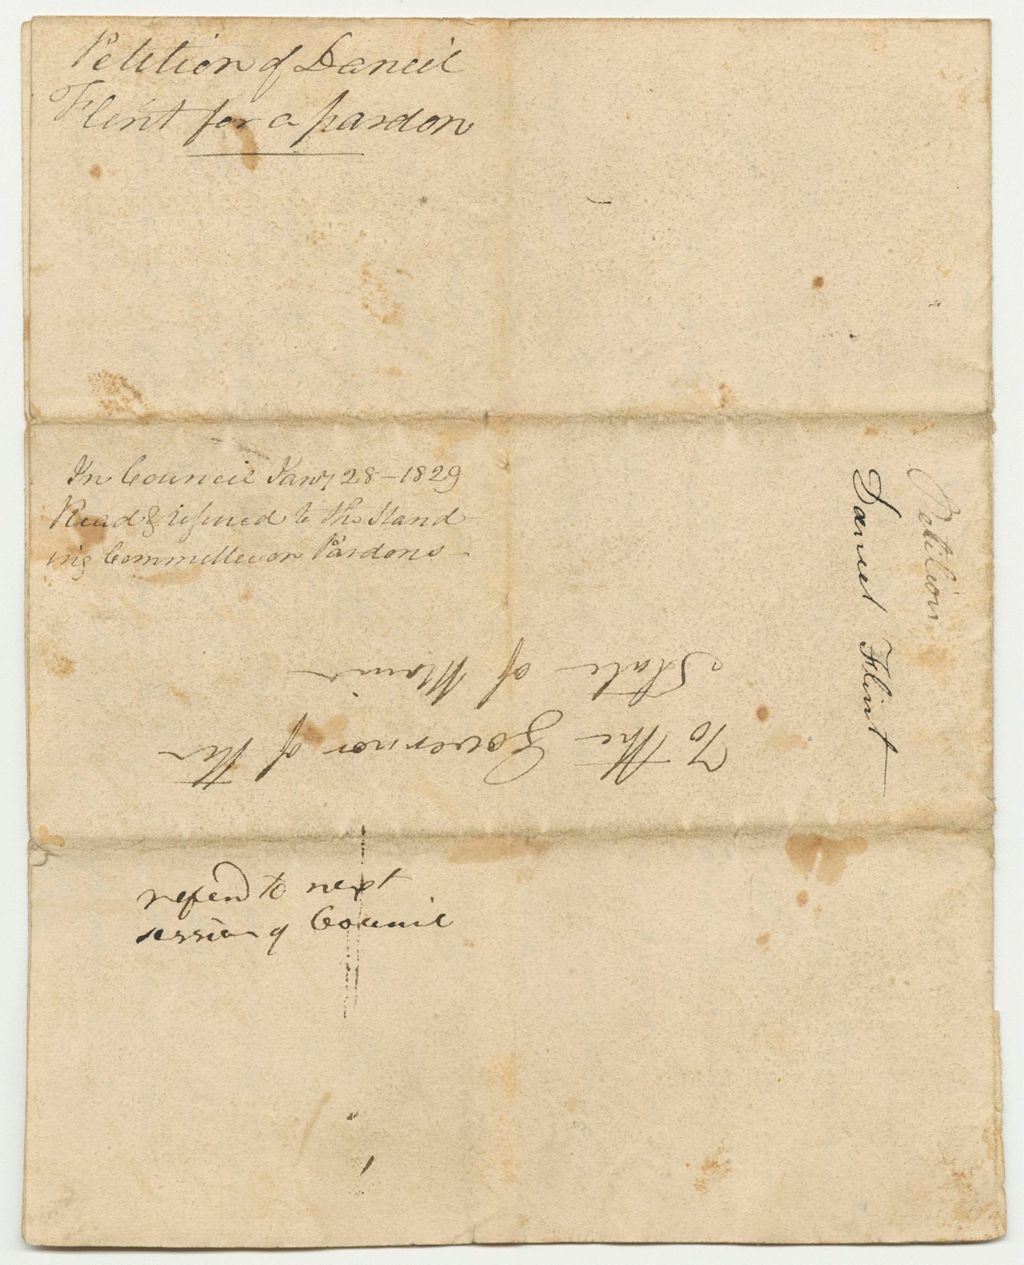 Petition of Daniel
Flint for a pardon
In Council Jany 28 - 1829
Read & referred to the Stand
ing Committee on Pardons
Petition
Daniel Flint
To the Governor of the
State of Maine
referd to next
session of Council